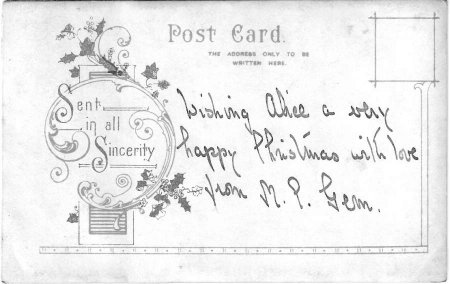 Post Card.
THE ADDRESS ONLY TO BE
WRITTEN HERE.
Sent
in all
Sincerity
Wishing Alice a very
happy Christmas with love
from M. P. Gem.